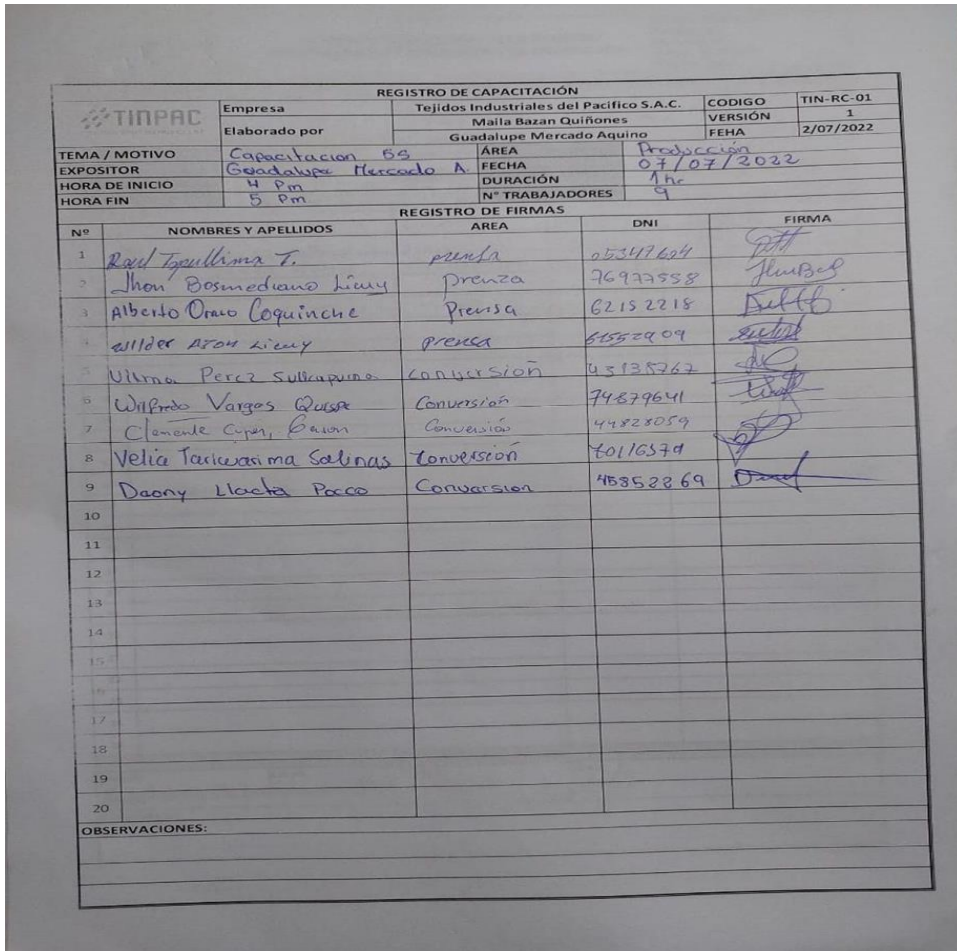 REGISTRO DE CAPACITACIÓN
TINPAC Empresa Tejidos Industriales del Pacifico S.A.C. CODIGO TIN-RC-01
Elaborado por Maila Bazan Quiñones VERSIÓN 1
Guadalupe Mercado Aquino FEHA 2/07/2022
TEMA / MOTIVO Capacitacion 5S ÁREA Producción
EXPOSITOR Guadalupe Mercado A. FECHA 07/07/2022
HORA DE INICIO 4 Pm DURACIÓN 1 hr
HORA FIN 5 Pm N° TRABAJADORES 9
REGISTRO DE FIRMAS
Nº NOMBRES Y APELLIDOS AREA DNI FIRMA
1 Raul T. prensa
2 Jhon Bosmediano Licuy prenza 76977558
3 Alberto Coquinche Prensa 62152218
4 Wilder Licuy prensa
5 Vilma Perez conversión 43138767
6 Wilfredo Vargas Quispe Conversión 74879641
7 Clemente Conversión 44828059
8 Velia Tariwarima Salinas Conversión
9 Daony Llacta Pocco Conversion 45852269
10
11
12
13
14
15
16
17
18
19
20
OBSERVACIONES: